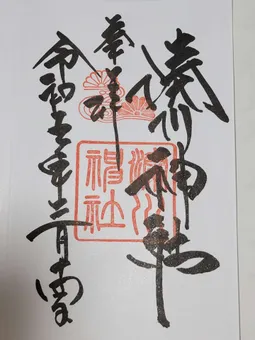 湊川神社
奉拝
湊川
神社
令和五年三月十四日